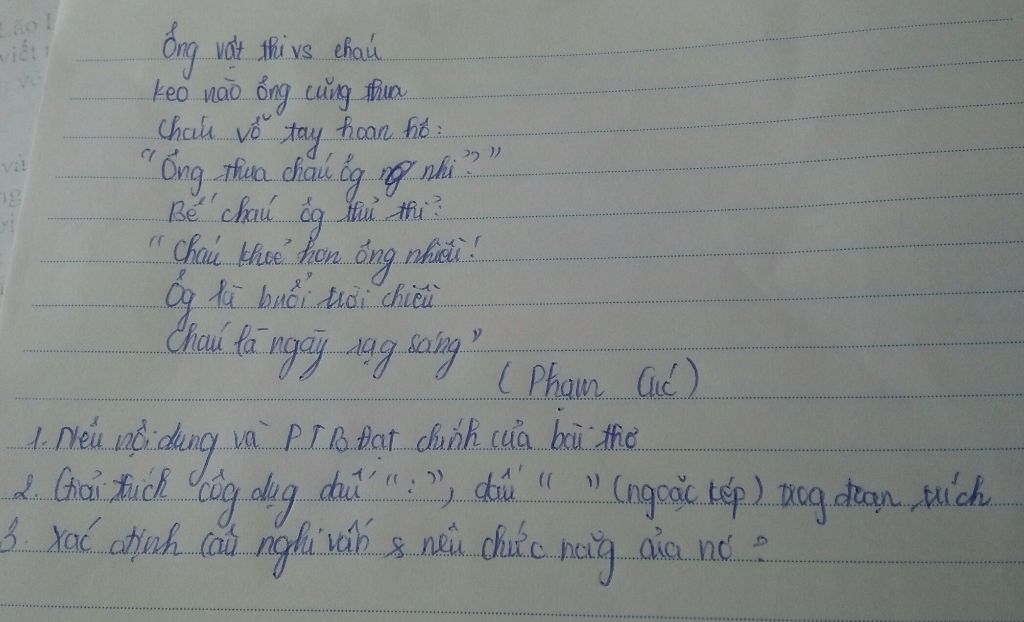 Ông vật thi vs cháu
keo nào ông cũng thua
cháu vỗ tay hoan hô:
"Ông thua cháu ôg nhỉ?"
Bế cháu ôg thủ thỉ:
"Cháu khoẻ hơn ông nhiều!
Ôg là buổi trời chiều
Cháu là ngày rạg sáng"
(Phạm Cúc)
1. Nêu nội dung và PTBĐạt chính của bài thơ
2. Giải thích côg dụg dấu ":", dấu " " (ngoặc kép) trog đoạn trích
3. xác định câu nghi vấn & nêu chức năg của nó?